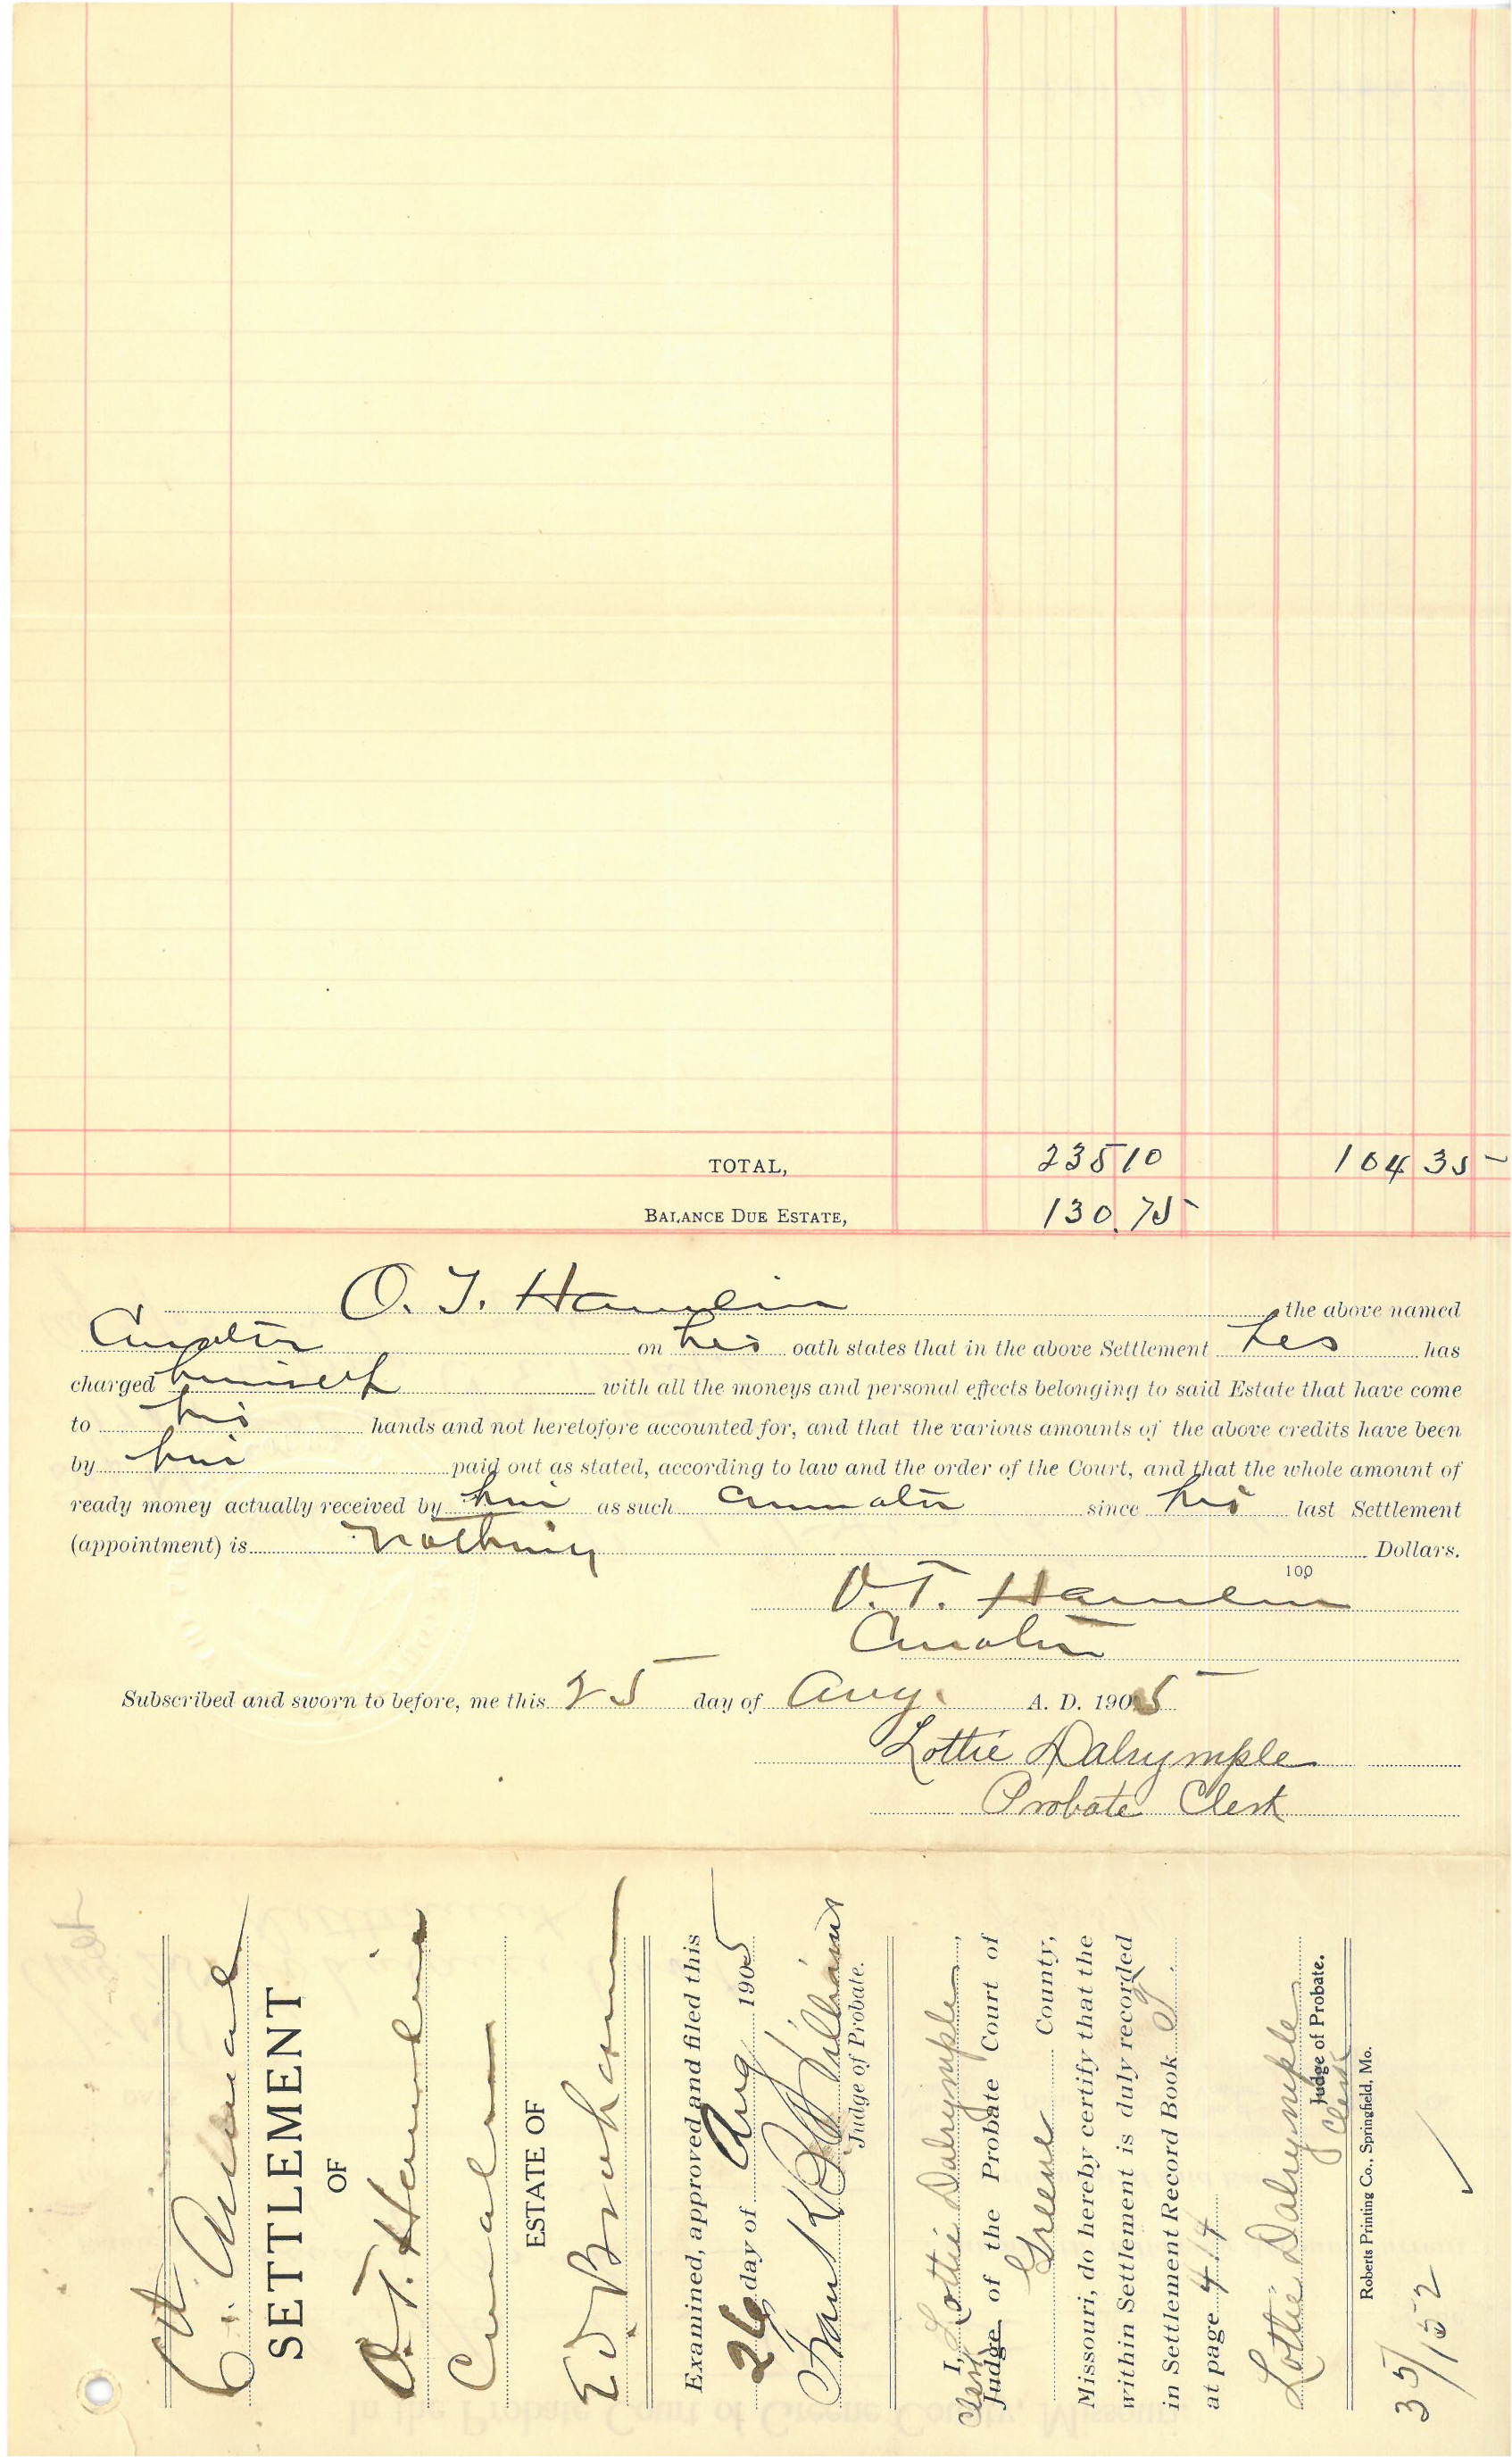 TOTAL, 235 10 104 35
BALANCE DUE ESTATE, 130.75
O. T. Hamlin the above named
Curator on his oath states that in the above Settlement hes has
charged himself with all the moneys and personal effects belonging to said Estate that have come
to his hands and not heretofore accounted for, and that the various amounts of the above credits have been
by him paid out as stated, according to law and the order of the Court, and that the whole amount of
ready money actually received by him as such curator since his last Settlement
(appointment) is nothing Dollars.
100
O. T. Hamlin
Curator
Subscribed and sworn to before, me this 25 day of Aug. A. D. 1905
Lottie Dalrymple
Probate Clerk
6th Annual
SETTLEMENT
OF
O. T. Hamlin
Curator
ESTATE OF
Examined, approved and filed this
26 day of Aug 1905
Judge of Probate.
I, Lottie Dalrymple,
Clerk Judge of the Probate Court of
Greene County,
Missouri, do hereby certify that the
within Settlement is duly recorded
in Settlement Record Book
at page 414
Lottie Dalrymple
Judge of Probate.
Clerk
Roberts Printing Co., Springfield, Mo.
35/152
In the Probate Court of Greene County, Missouri